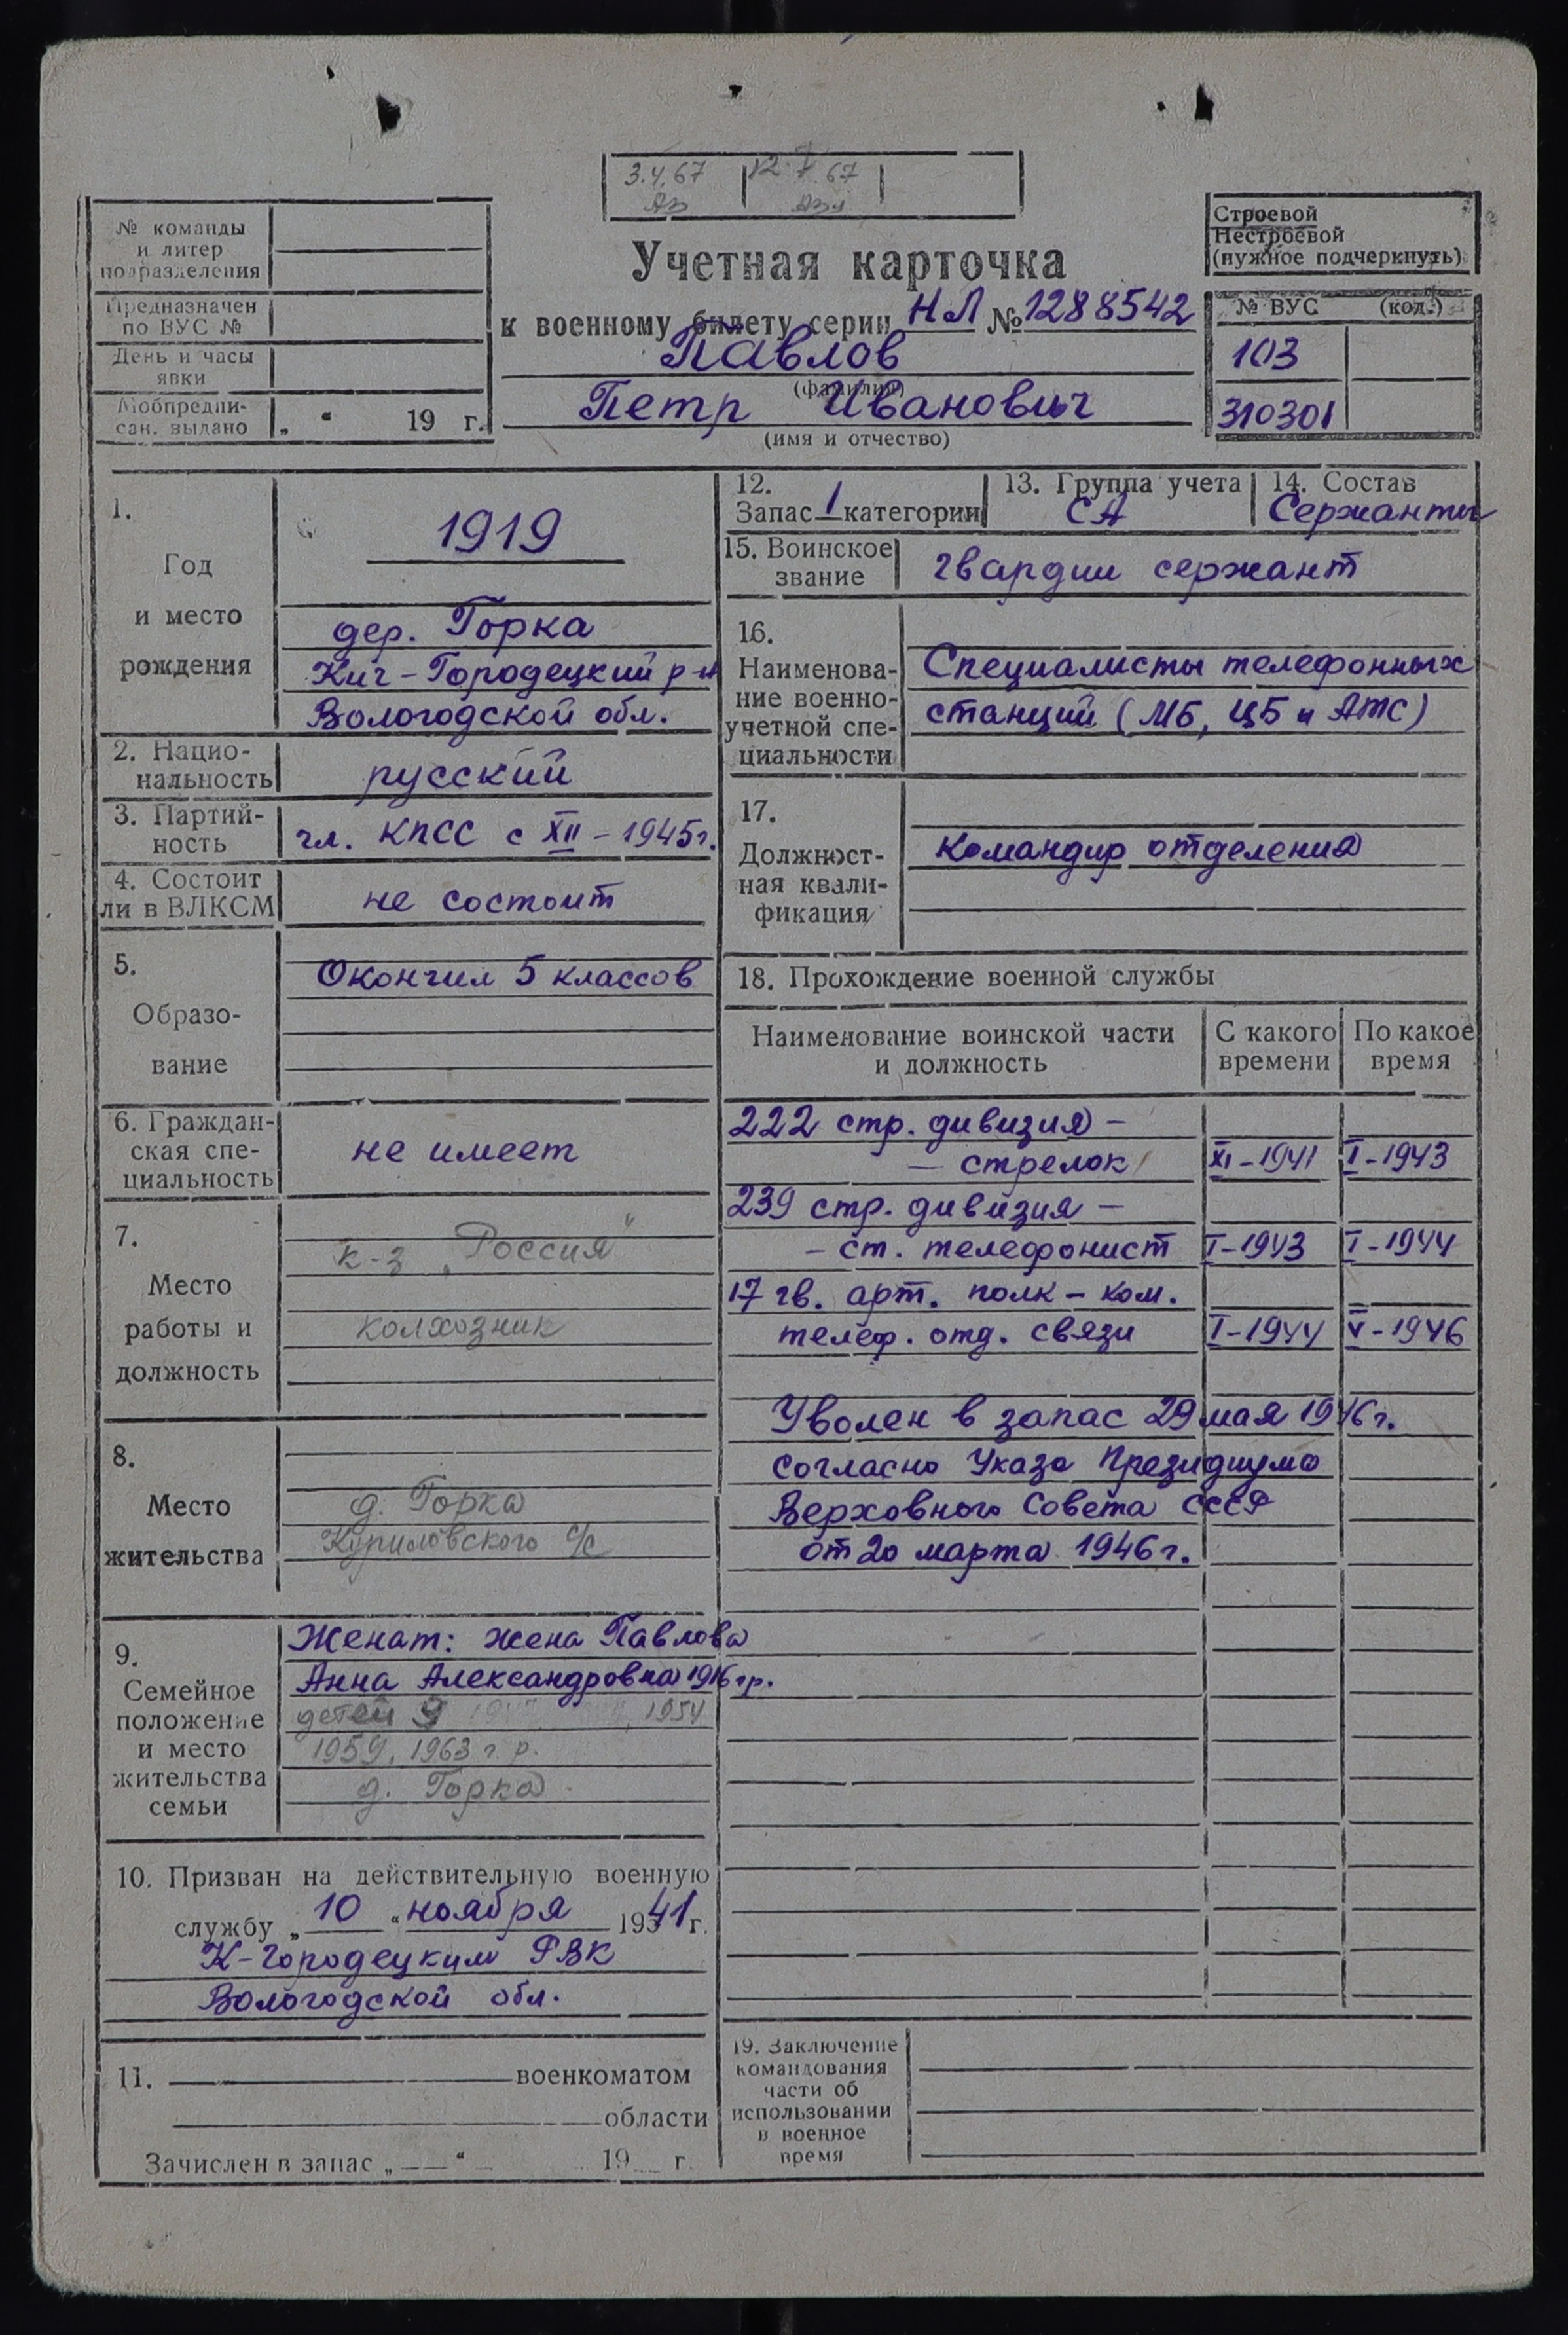 3.4.67
67
№ команды
и литер
подразделения
Предназначен
по ВУС №
День и часы
явки
Мобпредпи-
сан. выдано „ “ 19 г.
Учетная карточка
к военному билету серии НЛ № 1288542
Павлов
(фамилия)
Петр Иванович
(имя и отчество)
Строевой
Нестроевой
(нужное подчеркнуть)
№ ВУС (код.)
103
310301
1.
Год
и место
рождения
1919
дер. Горка
Кич-Городецкий р-н
Вологодской обл.
2. Нацио-
нальность
русский
3. Партий-
ность
чл. КПСС с XII – 1945г.
4. Состоит
ли в ВЛКСМ
не состоит
5.
Образо-
вание
Окончил 5 классов
6. Граждан-
ская спе-
циальность
не имеет
7.
Место
работы и
должность
к-з „Россия"
колхозник
8.
Место
жительства
д. Горка
Куриловского с/с
9.
Семейное
положение
и место
жительства
семьи
Женат: жена Павлова
Анна Александровна 1916 гр.
детей 1954
1959, 1963 г. р.
д. Горка
10. Призван на действительную военную
службу „10“ ноября 1941 г.
К-Городецким РВК
Вологодской обл.
11. военкоматом
области
Зачислен в запас „ “ 19 г.
12.
Запас 1 категории
13. Группа учета
СА
14. Состав
Сержанты
15. Воинское
звание
гвардии сержант
16.
Наименова-
ние военно-
учетной спе-
циальности
Специалисты телефонных
станций (МБ, ЦБ и АТС)
17.
Должност-
ная квали-
фикация
Командир отделения
18. Прохождение военной службы
Наименование воинской части
и должность
С какого
времени
По какое
время
222 стр. дивизия –
– стрелок XI-1941 I-1943
239 стр. дивизия –
– ст. телефонист I-1943 I-1944
17 гв. арт. полк – ком.
телеф. отд. связи I-1944 V-1946
Уволен в запас 29 мая 1946г.
согласно Указа Президиума
Верховного Совета СССР
от 20 марта 1946г.
19. Заключение
командования
части об
использовании
в военное
время